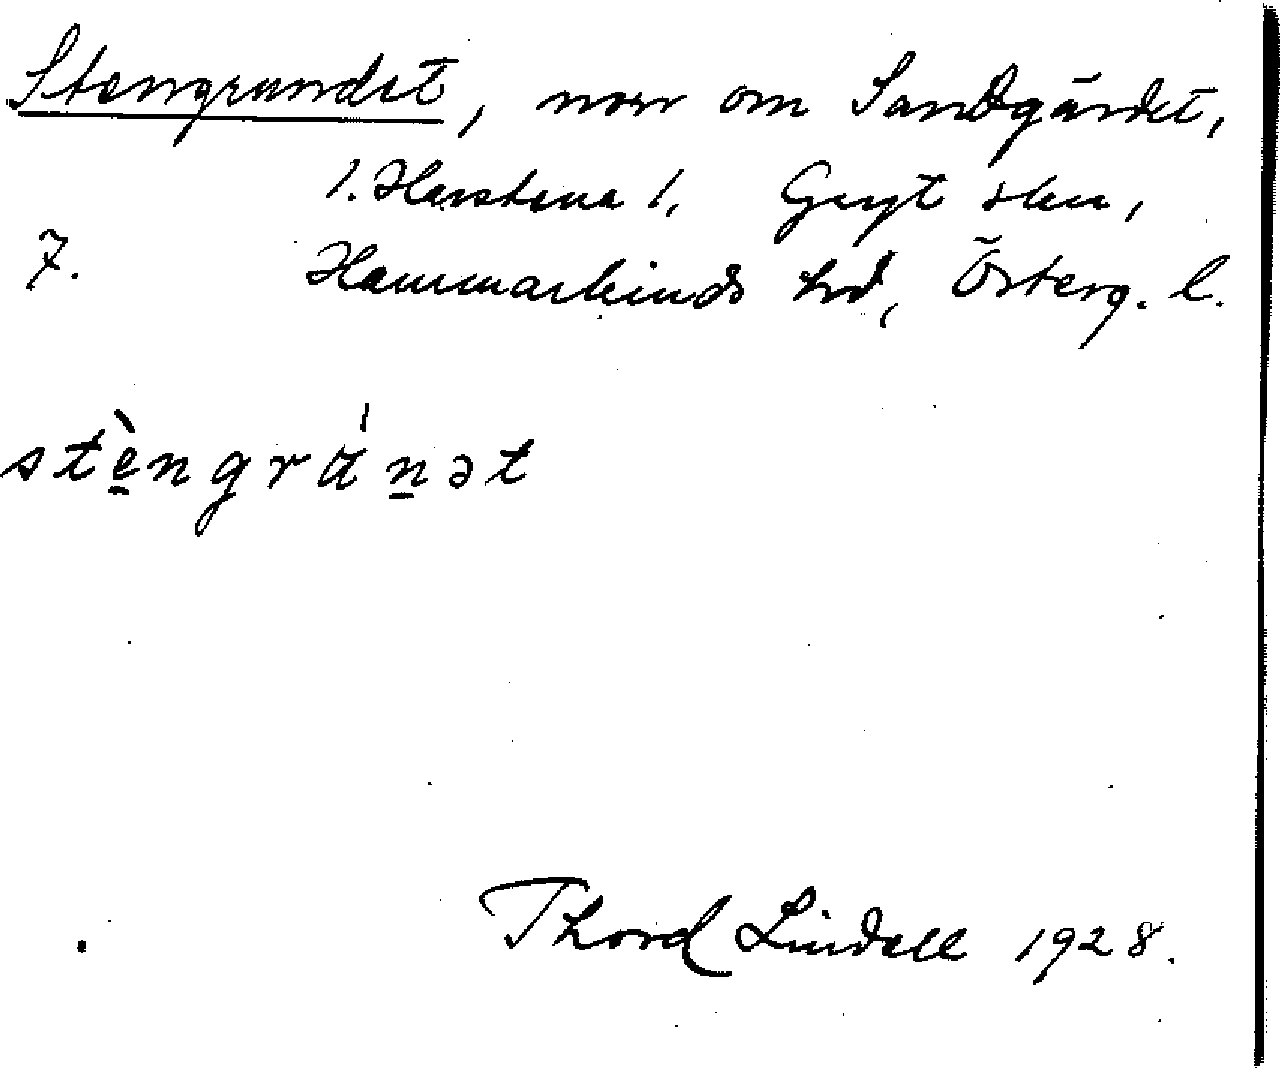 Stengrundet, norr om Sandgärdet,
1. Harstena 1, Gryt skn,
7. Hammarkinds hd, Österg. l.
stèngránət
Thord Lindell 1928.